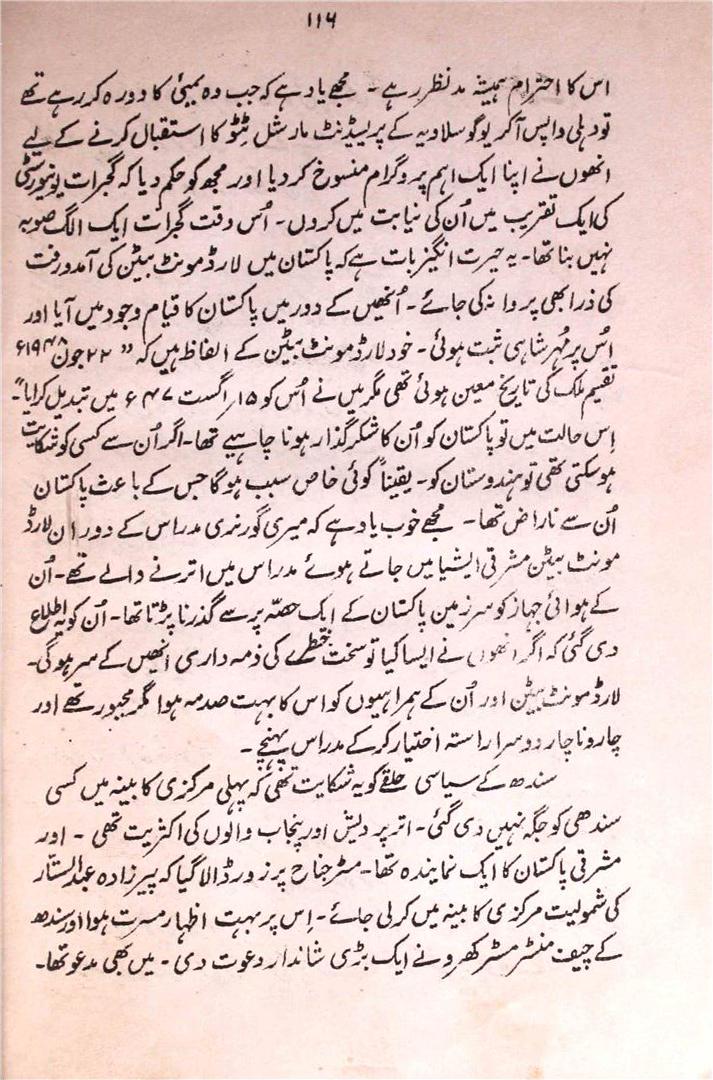 ۱۱۶
اس کا احترام ہمیشہ مدنظر رہے ۔ مجھے یاد ہے کہ جب وہ بمبئی کا دورہ کر رہے تھے
تو دہلی واپس آکر یوگوسلاویہ کے پریسیڈنٹ مارشل ٹیٹو کا استقبال کرنے کے لیے
انھوں نے اپنا ایک اہم پروگرام منسوخ کر دیا اور مجھ کو حکم دیا کہ گجرات یونیورسٹی
کی ایک تقریب میں اُن کی نیابت میں کروں۔ اُس وقت گجرات ایک الگ صوبہ
نہیں بنا تھا۔ یہ حیرت انگیز بات ہے کہ پاکستان میں لارڈ مونٹ بیٹن کی آمد و رفت
کی ذرا بھی پروا نہ کی جائے ۔ اُنھیں کے دور میں پاکستان کا قیام وجود میں آیا اور
اُس پر مُہر شاہی ثبت ہوئی ۔ خود لارڈ مونٹ بیٹن کے الفاظ ہیں کہ " ۲۲ جون ۱۹۴۸ء
تقسیم ملک کی تاریخ معین ہوئی تھی مگر میں نے اُس کو ۱۵/ اگست ۴۷ء میں تبدیل کرایا"۔
اِس حالت میں تو پاکستان کو اُن کا شکر گذار ہونا چاہیے تھا۔ اگر اُن سے کسی کو شکایت
ہو سکتی تھی تو ہندوستان کو۔ یقیناً کوئی خاص سبب ہوگا جس کے باعث پاکستان
اُن سے ناراض تھا ۔ مجھے خوب یاد ہے کہ میری گورنری مدراس کے دوران لارڈ
مونٹ بیٹن مشرقی ایشیا میں جاتے ہوئے مدراس میں اترنے والے تھے ۔ اُن
کے ہوائی جہاز کو سرزمین پاکستان کے ایک حصّہ پر سے گذرنا پڑتا تھا۔ اُن کو یہ اطلاع
دی گئی کہ اگر انھوں نے ایسا کیا تو سخت خطرے کی ذمہ داری انھیں کے سر ہوگی۔
لارڈ مونٹ بیٹن اور اُن کے ہمراہیوں کو اس کا بہت صدمہ ہوا مگر مجبور تھے اور
چار و ناچار دوسرا راستہ اختیار کر کے مدراس پہنچے ۔
سندھ کے سیاسی حلقے کو یہ شکایت تھی کہ پہلی مرکزی کابینہ میں کسی
سندھی کو جگہ نہیں دی گئی۔ اتر پردیش اور پنجاب والوں کی اکثریت تھی ۔ اور
مشرقی پاکستان کا ایک نمایندہ تھا۔ مسٹر جناح پر زور ڈالا گیا کہ پیرزادہ عبدالستّار
کی شمولیت مرکزی کابینہ میں کر لی جائے ۔ اِس پر بہت اظہار مسرت ہوا اور سندھ
کے چیف منسٹر مسٹر کھرو نے ایک بڑی شاندار دعوت دی ۔ میں بھی مدعو تھا۔